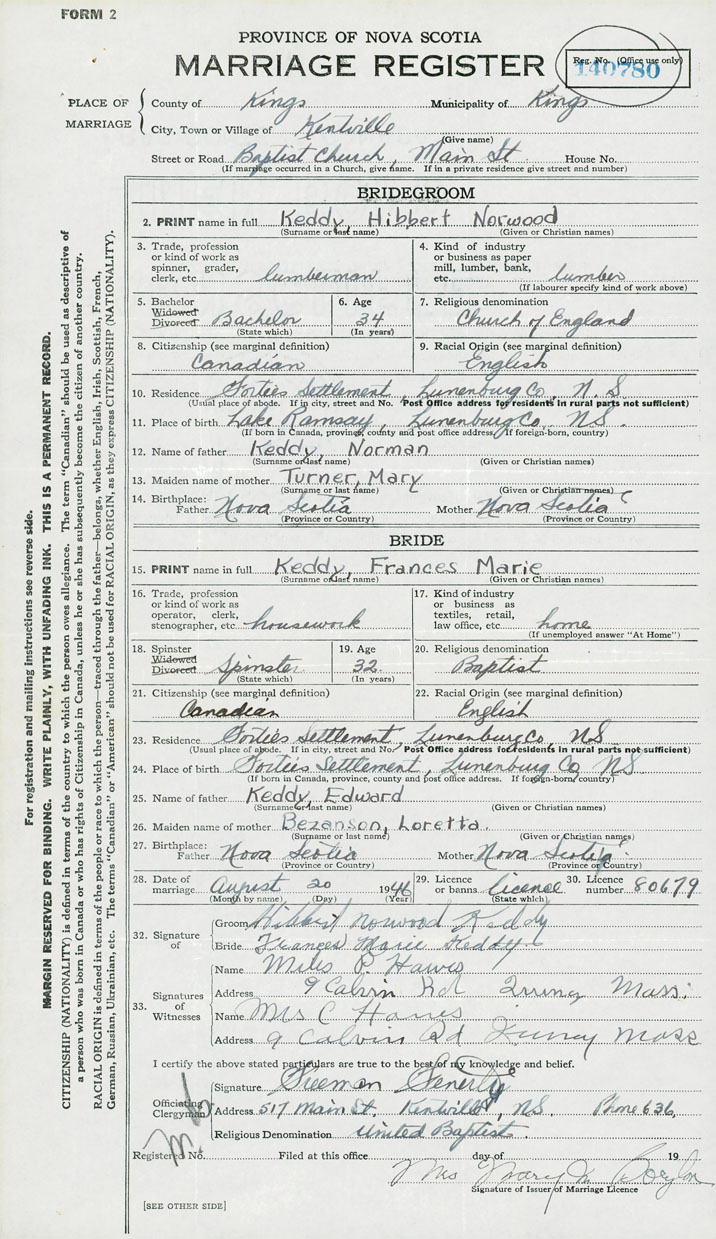 FORM 2
PROVINCE OF NOVA SCOTIA
MARRIAGE REGISTER
Reg. No. (Office use only)
140780
PLACE OF MARRIAGE
County of Kings Municipality of Kings
City, Town or Village of Kentville
(Give name)
Street or Road Baptist Church, Main St House No.
(If marriage occurred in a Church, give name. If in a private residence give street and number)
BRIDEGROOM
2. PRINT name in full Keddy, Hibbert Norwood
(Surname or last name) (Given or Christian names)
3. Trade, profession or kind of work as spinner, grader, clerk, etc. lumberman
4. Kind of industry or business as paper mill, lumber, bank, etc. lumber
(If labourer specify kind of work above)
5. Bachelor Widowed Divorced Bachelor
(State which)
6. Age 34
(In years)
7. Religious denomination
Church of England
8. Citizenship (see marginal definition)
Canadian
9. Racial Origin (see marginal definition)
English
10. Residence Forties Settlement, Lunenburg Co, N.S
(Usual place of abode. If in city, street and No. Post Office address for residents in rural parts not sufficient)
11. Place of birth Lake Ramsay, Lunenburg Co, NS.
(If born in Canada, province, county and post office address. If foreign-born, country)
12. Name of father Keddy, Norman
(Surname or last name) (Given or Christian names)
13. Maiden name of mother Turner, Mary
(Surname or last name) (Given or Christian names)
14. Birthplace: Father Nova Scotia Mother Nova Scotia
(Province or Country) (Province or Country)
BRIDE
15. PRINT name in full Keddy, Frances Marie
(Surname or last name) (Given or Christian names)
16. Trade, profession or kind of work as operator, clerk, stenographer, etc. housework
17. Kind of industry or business as textiles, retail, law office, etc. home
(If unemployed answer "At Home")
18. Spinster Widowed Divorced Spinster
(State which)
19. Age 32
(In years)
20. Religious denomination
Baptist
21. Citizenship (see marginal definition)
Canadian
22. Racial Origin (see marginal definition)
English
23. Residence Forties Settlement, Lunenburg Co, NS
(Usual place of abode. If in city, street and No. Post Office address for residents in rural parts not sufficient)
24. Place of birth Forties Settlement, Lunenburg Co NS
(If born in Canada, province, county and post office address. If foreign-born, country)
25. Name of father Keddy, Edward
(Surname or last name) (Given or Christian names)
26. Maiden name of mother Bezanson, Loretta.
(Surname or last name) (Given or Christian names)
27. Birthplace: Father Nova Scotia Mother Nova Scotia
(Province or Country) (Province or Country)
28. Date of marriage August 20 1946
(Month by name) (Day) (Year)
29. Licence or banns licence
(State which)
30. Licence number 80679
32. Signature of
Groom Hibbert Norwood Keddy
Bride Frances Marie Keddy
33. Signatures of Witnesses
Name Miles P.
Address 9 Calvin Rd Mass.
Name Mrs C
Address 9 Calvin Rd Mass
I certify the above stated particulars are true to the best of my knowledge and belief.
Officiating Clergyman
Signature Freeman Fenerty
Address 517 Main St. Kentville, NS. Phone 636,
Religious Denomination United Baptist.
Registered No. Filed at this office day of 19
Mrs Mary
Signature of Issuer of Marriage Licence
[SEE OTHER SIDE]
For registration and mailing instructions see reverse side.
MARGIN RESERVED FOR BINDING. WRITE PLAINLY, WITH UNFADING INK. THIS IS A PERMANENT RECORD.
CITIZENSHIP (NATIONALITY) is defined in terms of the country to which the person owes allegiance. The term "Canadian" should be used as descriptive of
a person who was born in Canada or who has rights of Citizenship in Canada, unless he or she has subsequently become the citizen of another country.
RACIAL ORIGIN is defined in terms of the people or race to which the person—traced through the father—belongs, whether English, Irish, Scottish, French,
German, Russian, Ukrainian, etc. The terms "Canadian" or "American" should not be used for RACIAL ORIGIN, as they express CITIZENSHIP (NATIONALITY).